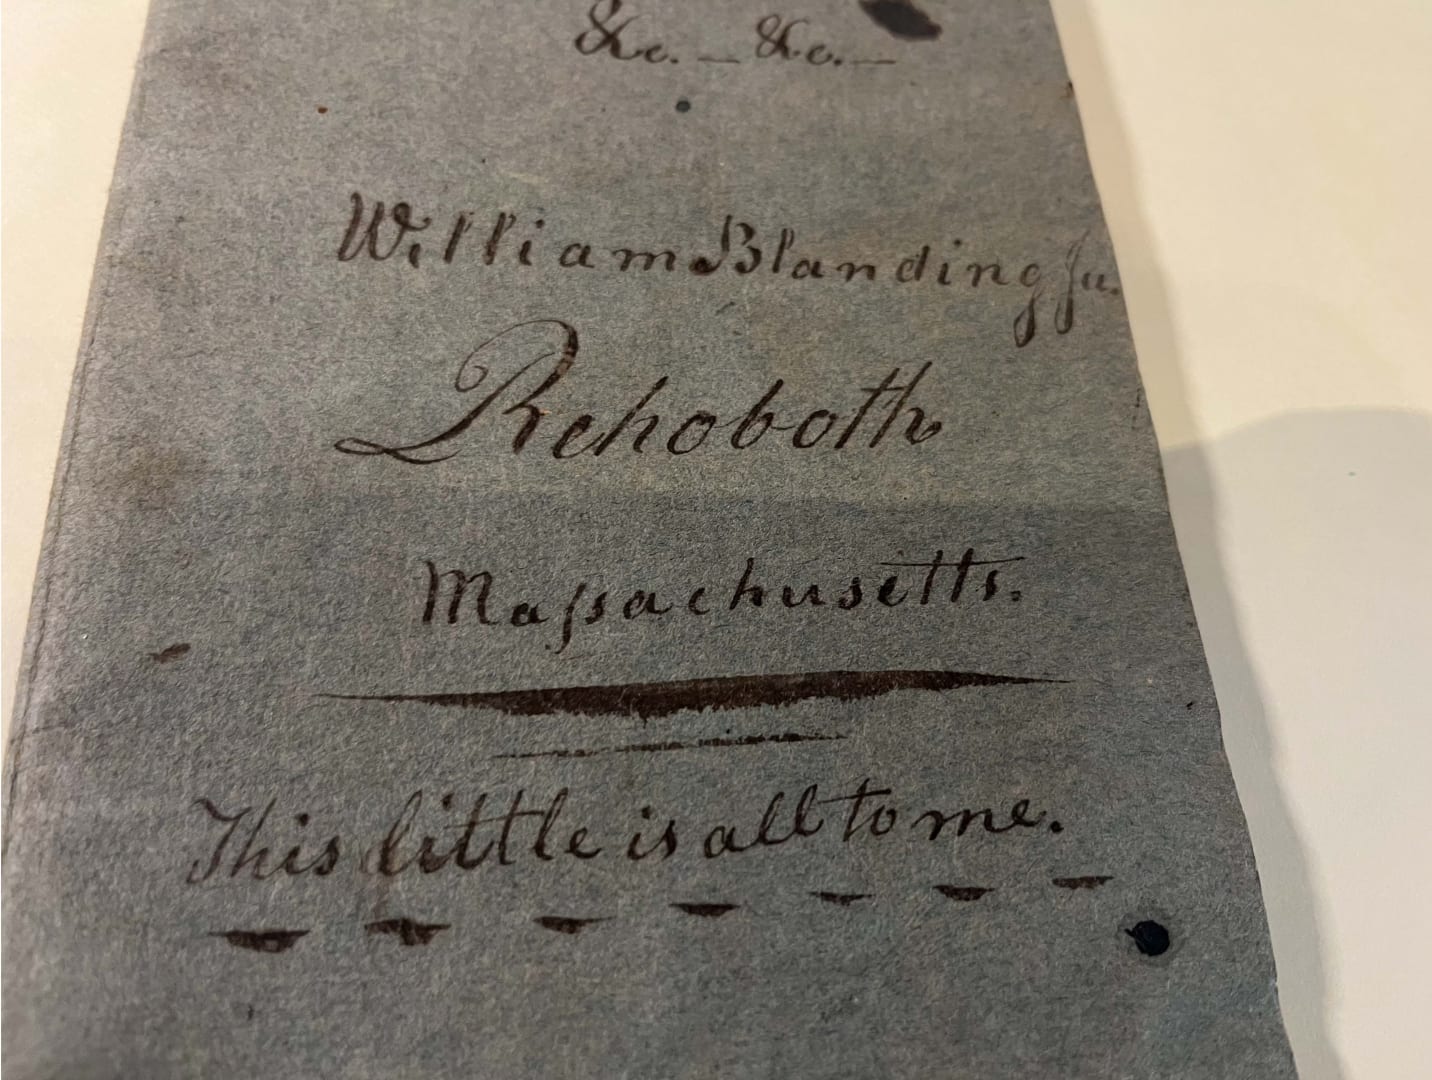 &c. — &c. —
William Blanding Ju.
Rehoboth
Maſsachusetts.
This little is all to me.